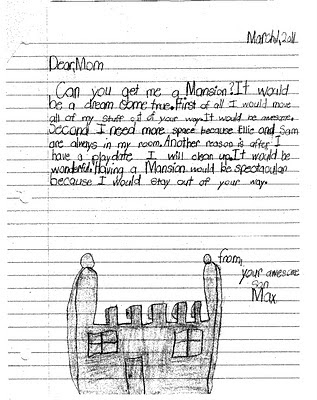 March 1, 2011
Dear, Mom
Can you get me a Mansion? It would
be a dream come true. First of all I would move
all of my stuff out of your way. It would be awesome.
Second I need more space because Ellie and Sam
are always in my room. Another reason is after I
have a playdate I will clean up. It would be
wonderful. Having a Mansion would be spectacular
because I would stay out of your way.
from,
your awesome
son
Max